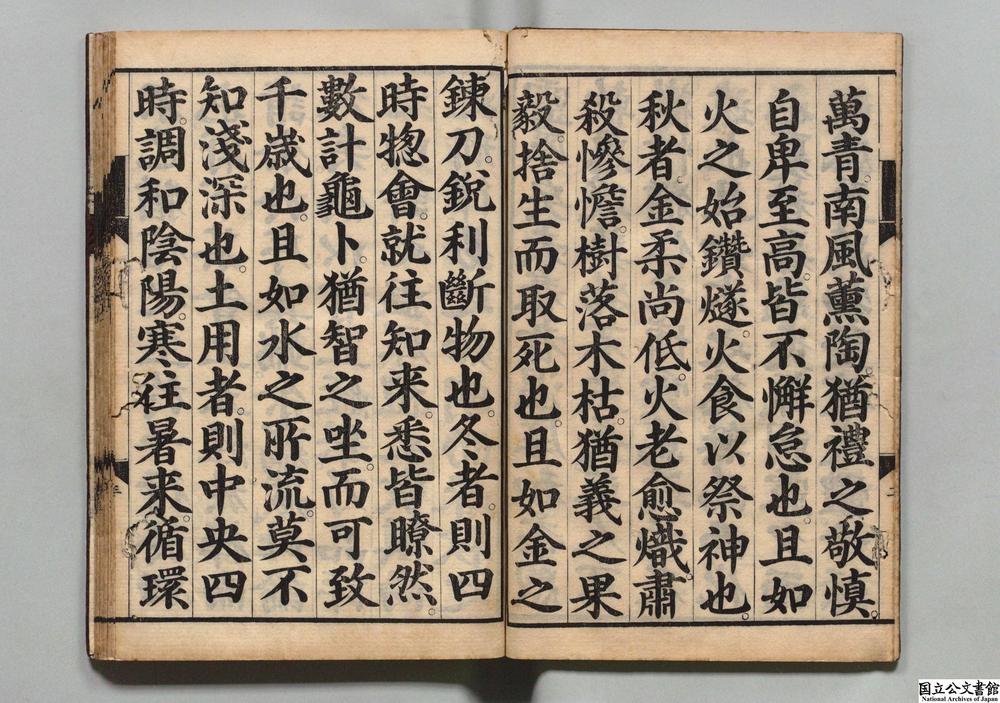 萬青。南風薰陶。猶禮之敬慎。
自卑至高。皆不懈怠也。且如
火之始鑽燧。火食以祭神也。
秋者。金柔尚低。火老愈熾。肅
殺慘憺。樹落木枯。猶義之果
毅。捨生而取死也。且如金之
鍊刀。銳利斷物也。冬者。則四
時惣會。就往知来。悉皆瞭然。
數計龜卜。猶智之坐。而可致
千歲也。且如水之所流。莫不
知淺深也。土用者。則中央四
時。調和陰陽。寒往暑来。循環
国立公文書館
National Archives of Japan